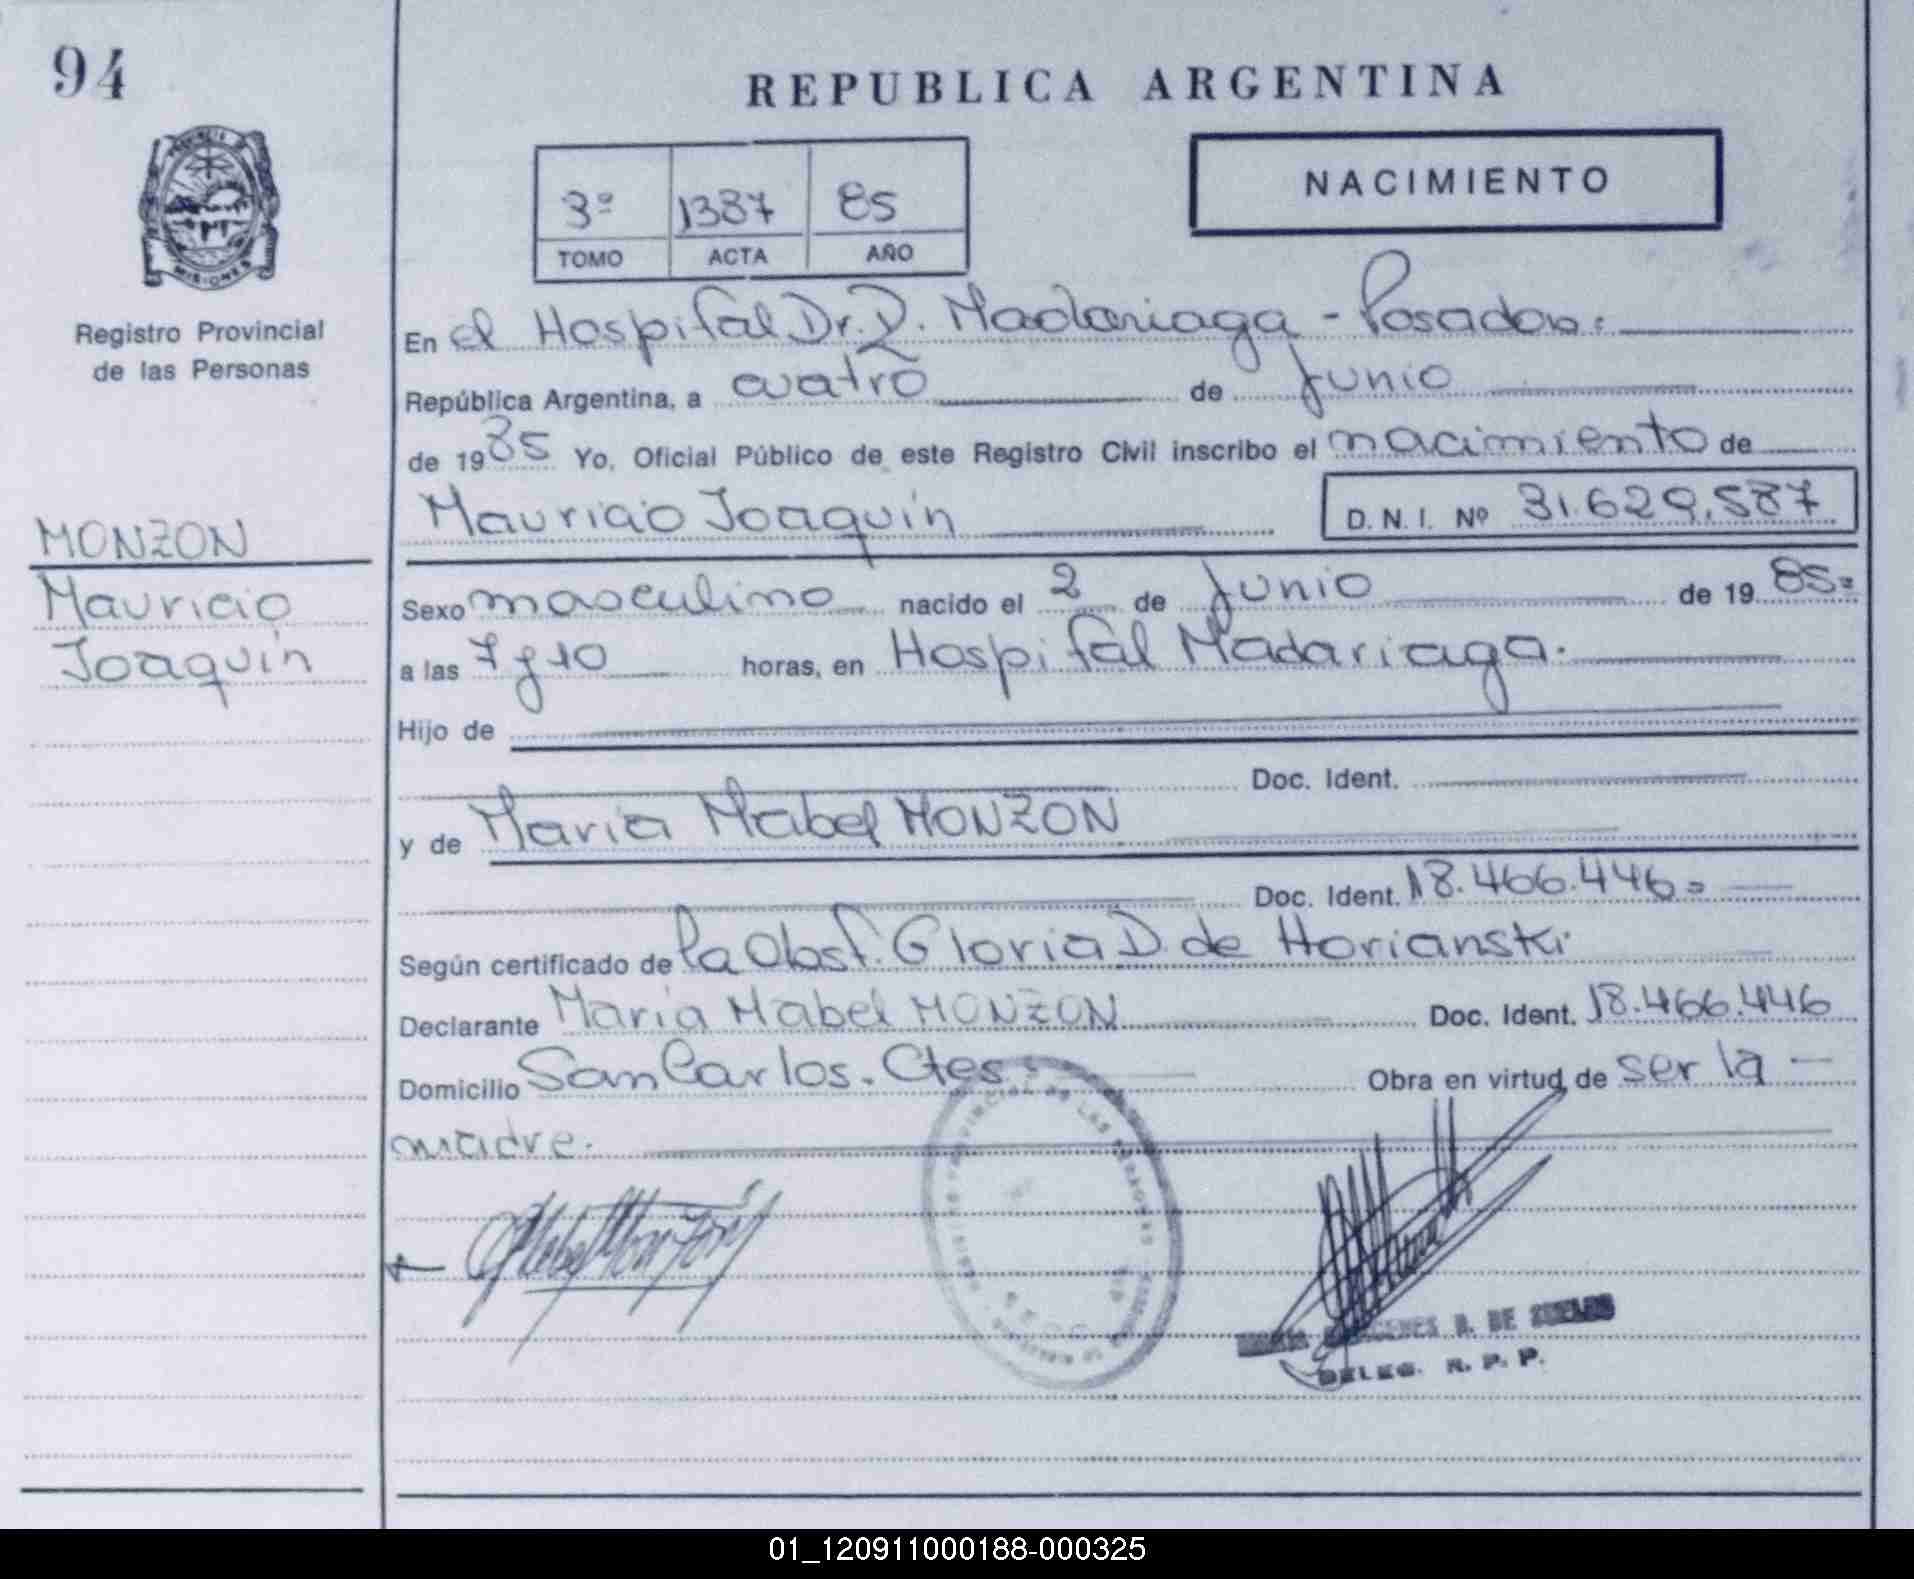 94
REPUBLICA ARGENTINA
PROVINCIA DE
MISIONES
Registro Provincial
de las Personas
3º 1387 85
TOMO ACTA AÑO
NACIMIENTO
En el Hospital Dr. R. Madariaga - Posadas.
República Argentina, a cuatro de junio
de 1985 Yo, Oficial Público de este Registro Civil inscribo el nacimiento de
Mauricio Joaquín D. N. I. Nº 31.629.587
MONZON
Mauricio
Joaquín
Sexo masculino nacido el 2 de junio de 19 85=
a las 7 y 10 horas, en Hospital Madariaga.
Hijo de
Doc. Ident.
y de Maria Mabel MONZON
Doc. Ident. 18.466.446=
Según certificado de la Obst. Gloria D. de Horianski
Declarante Maria Mabel MONZON Doc. Ident. 18.466.446
Domicilio San Carlos. Ctes. Obra en virtud de ser la
madre.
DE SUELOS
DELEG. R. P. P.
01_120911000188-000325